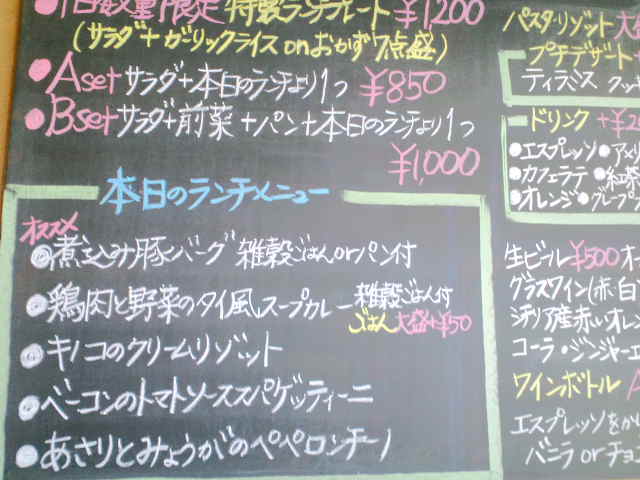 1日数量限定 特製ランチプレート ¥1200
(サラダ+ガーリックライス onおかず7点盛)
Aset サラダ+本日のランチより1つ ¥850
Bset サラダ+前菜+パン+本日のランチより1つ
¥1,000
本日のランチメニュー
オススメ
煮込み豚バーグ 雑穀ごはんorパン付
鶏肉と野菜のタイ風スープカレー 雑穀ごはん付
ごはん大盛+¥50
キノコのクリームリゾット
ベーコンのトマトソーススパゲッティーニ
あさりとみょうがのペペロンチーノ
パスタ・リゾット 大
プチデザート
ティラミス
ドリンク +¥2
エスプレッソ アメリ
カフェラテ 紅茶
オレンジ グレープ
生ビール ¥500
グラスワイン(赤・白
シチリア産赤いオレン
コーラ・ジンジャーエ
ワインボトル
エスプレッソをか
バニラ or チョコ